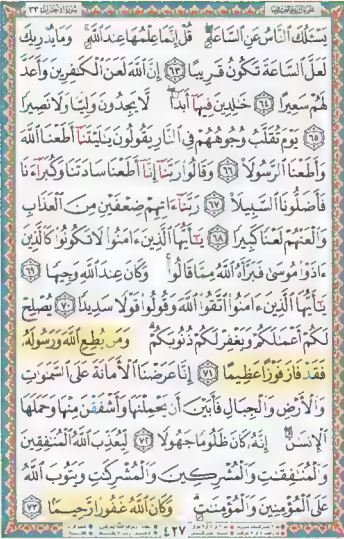 يَسْـَٔلُكَ ٱلنَّاسُ عَنِ ٱلسَّاعَةِ ۖ قُلْ إِنَّمَا عِلْمُهَا عِندَ ٱللَّهِ ۚ وَمَا يُدْرِيكَ
لَعَلَّ ٱلسَّاعَةَ تَكُونُ قَرِيبًا ٦٣ إِنَّ ٱللَّهَ لَعَنَ ٱلْكَـٰفِرِينَ وَأَعَدَّ
لَهُمْ سَعِيرًا ٦٤ خَـٰلِدِينَ فِيهَآ أَبَدًا ۖ لَّا يَجِدُونَ وَلِيًّا وَلَا نَصِيرًا
٦٥ يَوْمَ تُقَلَّبُ وُجُوهُهُمْ فِى ٱلنَّارِ يَقُولُونَ يَـٰلَيْتَنَآ أَطَعْنَا ٱللَّهَ
وَأَطَعْنَا ٱلرَّسُولَا۠ ٦٦ وَقَالُوا۟ رَبَّنَآ إِنَّآ أَطَعْنَا سَادَتَنَا وَكُبَرَآءَنَا
فَأَضَلُّونَا ٱلسَّبِيلَا۠ ٦٧ رَبَّنَآ ءَاتِهِمْ ضِعْفَيْنِ مِنَ ٱلْعَذَابِ
وَٱلْعَنْهُمْ لَعْنًا كَبِيرًا ٦٨ يَـٰٓأَيُّهَا ٱلَّذِينَ ءَامَنُوا۟ لَا تَكُونُوا۟ كَٱلَّذِينَ
ءَاذَوْا۟ مُوسَىٰ فَبَرَّأَهُ ٱللَّهُ مِمَّا قَالُوا۟ ۚ وَكَانَ عِندَ ٱللَّهِ وَجِيهًا ٦٩
يَـٰٓأَيُّهَا ٱلَّذِينَ ءَامَنُوا۟ ٱتَّقُوا۟ ٱللَّهَ وَقُولُوا۟ قَوْلًا سَدِيدًا ٧٠ يُصْلِحْ
لَكُمْ أَعْمَـٰلَكُمْ وَيَغْفِرْ لَكُمْ ذُنُوبَكُمْ ۗ وَمَن يُطِعِ ٱللَّهَ وَرَسُولَهُۥ
فَقَدْ فَازَ فَوْزًا عَظِيمًا ٧١ إِنَّا عَرَضْنَا ٱلْأَمَانَةَ عَلَى ٱلسَّمَـٰوَٰتِ
وَٱلْأَرْضِ وَٱلْجِبَالِ فَأَبَيْنَ أَن يَحْمِلْنَهَا وَأَشْفَقْنَ مِنْهَا وَحَمَلَهَا
ٱلْإِنسَـٰنُ ۖ إِنَّهُۥ كَانَ ظَلُومًا جَهُولًا ٧٢ لِّيُعَذِّبَ ٱللَّهُ ٱلْمُنَـٰفِقِينَ
وَٱلْمُنَـٰفِقَـٰتِ وَٱلْمُشْرِكِينَ وَٱلْمُشْرِكَـٰتِ وَيَتُوبَ ٱللَّهُ
عَلَى ٱلْمُؤْمِنِينَ وَٱلْمُؤْمِنَـٰتِ ۗ وَكَانَ ٱللَّهُ غَفُورًا رَّحِيمًۢا ٧٣
٤٢٧